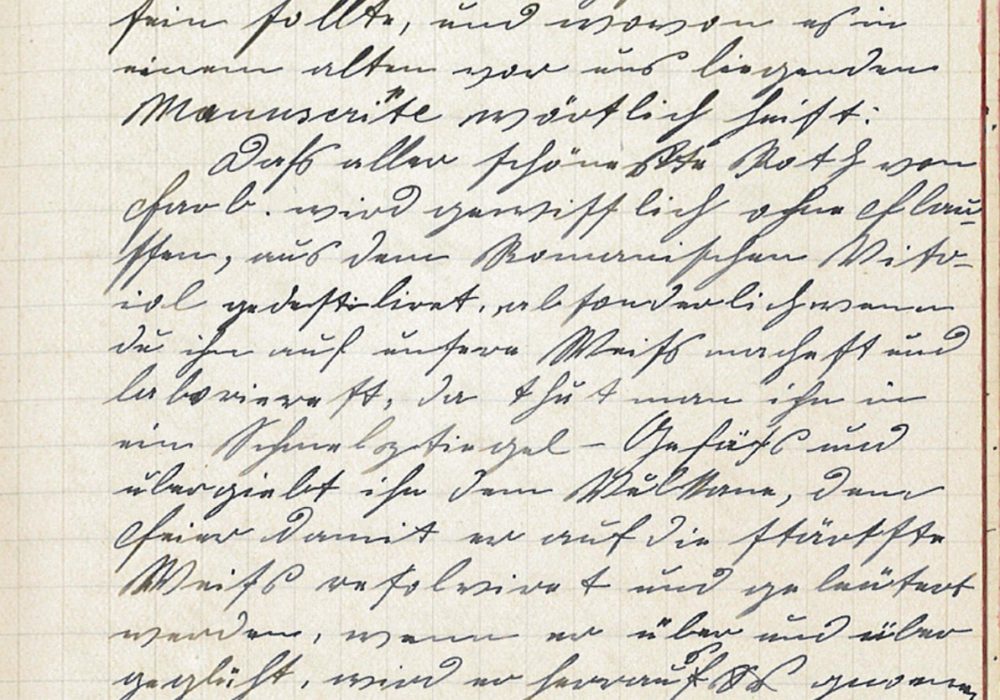 sein sollte, und wovon es in
einem alten vor uns liegenden
Manuscrite wörtlich heißt:
Daß aller schöneste Roth von
Farb. wird gewißlich ohne Flau-
ssen, aus dem Romanischen Vito-
riol gedestiliret, absonderlich wenn
du ihn auf unsere Weiß machest und
laborierest, da thut man ihn in
ein Schmelztiegel - Gefäß und
übergiebt ihn dem Vulkane, dem
Feier damit er auf die stärkste
Weiß resolviret und geleütert
werden, wenn er über und über
geglüht, wird er herrauß